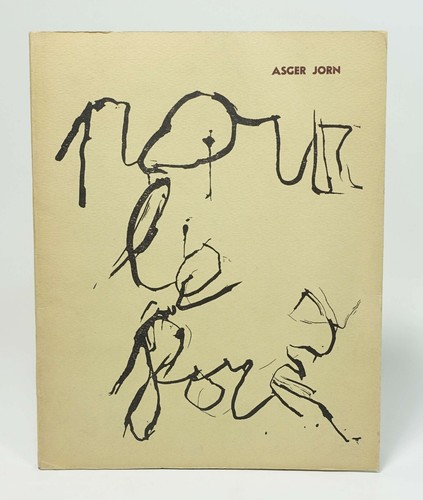 ASGER JORN
pour
la
forme